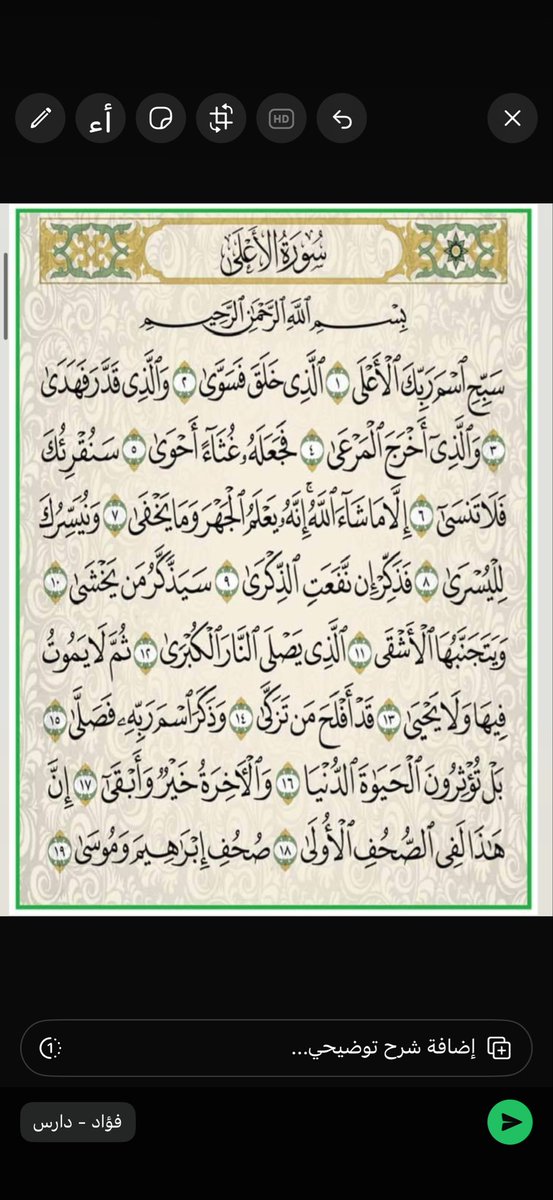 أء
HD
سُورَةُ الأَعْلَى
بِسْمِ اللَّهِ الرَّحْمَٰنِ الرَّحِيمِ
سَبِّحِ ٱسْمَ رَبِّكَ ٱلْأَعْلَى ١ ٱلَّذِى خَلَقَ فَسَوَّىٰ ٢ وَٱلَّذِى قَدَّرَ فَهَدَىٰ
٣ وَٱلَّذِىٓ أَخْرَجَ ٱلْمَرْعَىٰ ٤ فَجَعَلَهُۥ غُثَآءً أَحْوَىٰ ٥ سَنُقْرِئُكَ
فَلَا تَنسَىٰٓ ٦ إِلَّا مَا شَآءَ ٱللَّهُۚ إِنَّهُۥ يَعْلَمُ ٱلْجَهْرَ وَمَا يَخْفَىٰ ٧ وَنُيَسِّرُكَ
لِلْيُسْرَىٰ ٨ فَذَكِّرْ إِن نَّفَعَتِ ٱلذِّكْرَىٰ ٩ سَيَذَّكَّرُ مَن يَخْشَىٰ ١٠
وَيَتَجَنَّبُهَا ٱلْأَشْقَى ١١ ٱلَّذِى يَصْلَى ٱلنَّارَ ٱلْكُبْرَىٰ ١٢ ثُمَّ لَا يَمُوتُ
فِيهَا وَلَا يَحْيَىٰ ١٣ قَدْ أَفْلَحَ مَن تَزَكَّىٰ ١٤ وَذَكَرَ ٱسْمَ رَبِّهِۦ فَصَلَّىٰ ١٥
بَلْ تُؤْثِرُونَ ٱلْحَيَوٰةَ ٱلدُّنْيَا ١٦ وَٱلْـَٔاخِرَةُ خَيْرٌ وَأَبْقَىٰٓ ١٧ إِنَّ
هَٰذَا لَفِى ٱلصُّحُفِ ٱلْأُولَىٰ ١٨ صُحُفِ إِبْرَٰهِيمَ وَمُوسَىٰ ١٩
إضافة شرح توضيحي...
1
فؤاد - دارس